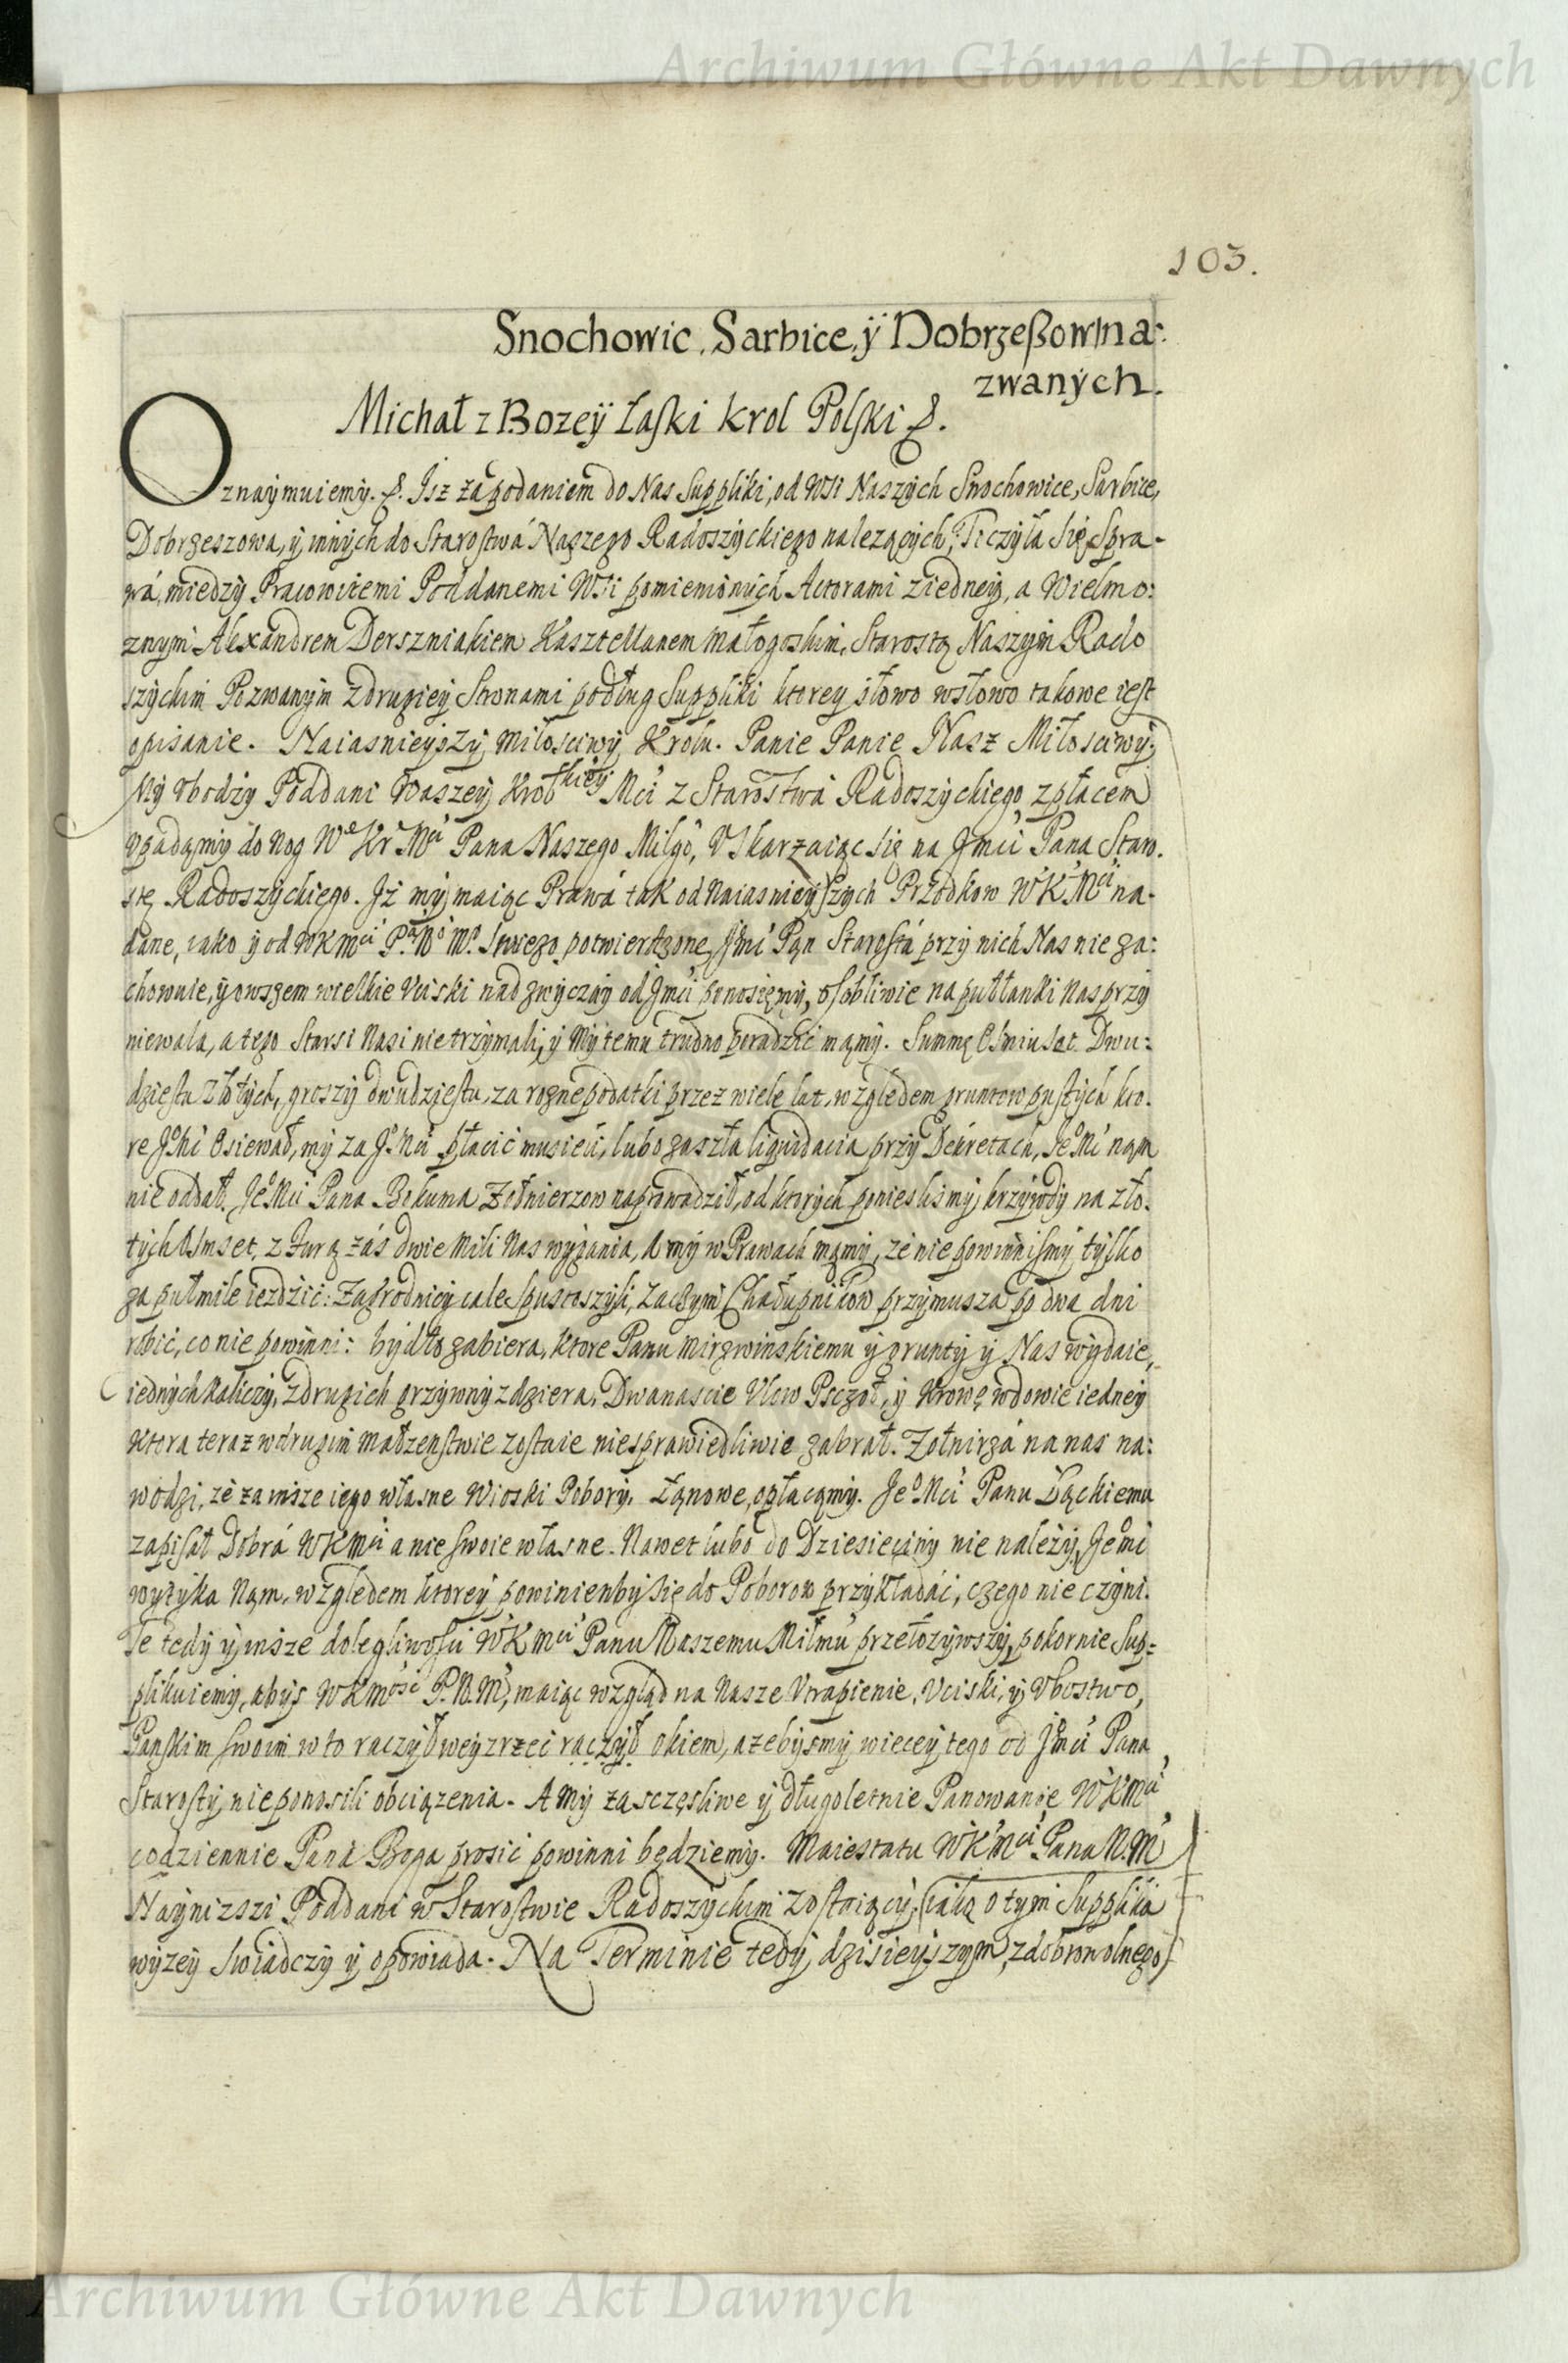 Archiwum Główne Akt Dawnych
103.
Snochowic, Sarbice, ÿ Dobrzeßow na:
zwanÿch.
Michał z Bozeÿ łaski Krol Polski &.
Oznaÿmuiemÿ. &. Isz za podaniem do Nas Suppliki, od WSi Naszÿch Snochowice, Sarbice,
Dobrzeszowa, ÿ innÿch do Starostwá Naszego Radoszÿckiego nalezącÿch, Ticzÿła się Spra-
wá, miedzÿ Pracowitemi Poddanemi WSi pomienionÿch Actorami ziedneÿ, a Wielmo:
znÿm Alexandrem Derszniakiem Kasztellanem Małogoskim, Starostą Naszÿm Rado
szÿckim Pozwanÿm zdrugieÿ Stronami podług Suppliki ktoreÿ słowo wsłowo takowe iest
opisanie. Naiasnieÿszÿ Miłosciwÿ Krolu. Panie Panie Nasz Miłosciwÿ.
Mÿ Vbodzÿ Poddani Waszeÿ Krolskieÿ Mci z Starostwá Radoszÿckiego zpłacem
Vpadamÿ do Nog We Kr Mci Pana Naszego Miłgo, VSkarzaiąc się na Jmci Pana Staro-
stę Radoszÿckiego. Iż mÿ maiąc Prawá tak od Naiasnieÿszÿch Przodkow WKMci na-
dane, iako ÿ od WKMci Pa No Mo Swiego potwierdzone, Jmć Pan Starostá przÿ nich Nas nie za:
chowuie, ÿ owszem wielkie Vciski nad zwÿczaÿ od Jmci ponosięmÿ, osobliwie na pułłanki Nas przÿ
niewala, a tego Starsi Nasi nie trzÿmali, ÿ Mÿ temu trudno poradzić mamÿ. Summę Osmiuset Dwu:
dziestu złotÿch, groszÿ dwudziestu, za rozne podatki przez wiele lat, względem gruntow pustÿch kto-
re Jo Mć Osiewał, mÿ za Jo Mci płacić musieli, lubo zaszła liquidacia przÿ Dekretach, Jeo Mć nąm
nie oddał. Jeo Mci Pana Bokuma Zołnierzow naprowadził, od ktorÿch poniesliśmÿ krzÿwdÿ na zło-
tÿch Osmset, z Furą zaś dwie Mili Nas wÿgania, A mÿ w Prawach mamÿ, ze nie powinnismÿ tÿlko
za pułmile iezdzić: Zagrodnicÿ cale spustoszÿli, zaczÿm Chałupnikow przÿmusza po dwa dni
robić, co nie powinni: bÿdło zabiera, ktore Panu Mirzwinskiemu ÿ gruntÿ ÿ Nas wÿdaie,
iednÿch kaliczÿ, zdrugich grzÿwnÿ zdziera, Dwanascie Vlow Pszczoł, ÿ Krowę wdowie iedneÿ
ktora teraz wdrugim małzenstwie zostaie niesprawiedliwie zabrał. Zołnirzá na nas na:
wodzi, ze za insze iego własne Wioski Poborÿ, łąnowe, opłacamÿ. Jeo Mci Panu Łąckiemu
zapisał Dobrá WKMci a nie swoie własne. Nawet lubo do Dziesięcinÿ nie należÿ, Jeo mć
wÿtÿka Nąm, względem ktoreÿ powinienbÿ się do Poborow przÿkładáć, czego nie czÿni.
Te tedÿ ÿ insze dolegliwosci WKMci Panu Naszemu Miłmu przełozÿwszÿ, pokornie Sup-
plikuiemÿ, abÿs WKMość P.N.M, maiąc wzgląd na Nasze Vtrapienie, Vciski, ÿ Vbostwo,
Pańskim swoim w to raczÿł weÿzrzeć raczÿł okiem, azebÿsmÿ wieceÿ tego od Jmci Pána
Starostÿ nie ponosili obciązenia. A Mÿ za szczęsliwe ÿ długoletnie Panowanie WKMci
codziennie Paná Boga prosić powinni będziemÿ. Maiestatu WKMci Pana N.M
Naÿnizszi Poddani w Starostwie Radoszÿckim zostaiącÿ, iako o tÿm Supplika
wÿzeÿ swiadczÿ ÿ opowiada. Na Terminie tedÿ dzisieÿszÿm, zdobrowolnego
Archiwum Główne Akt Dawnych